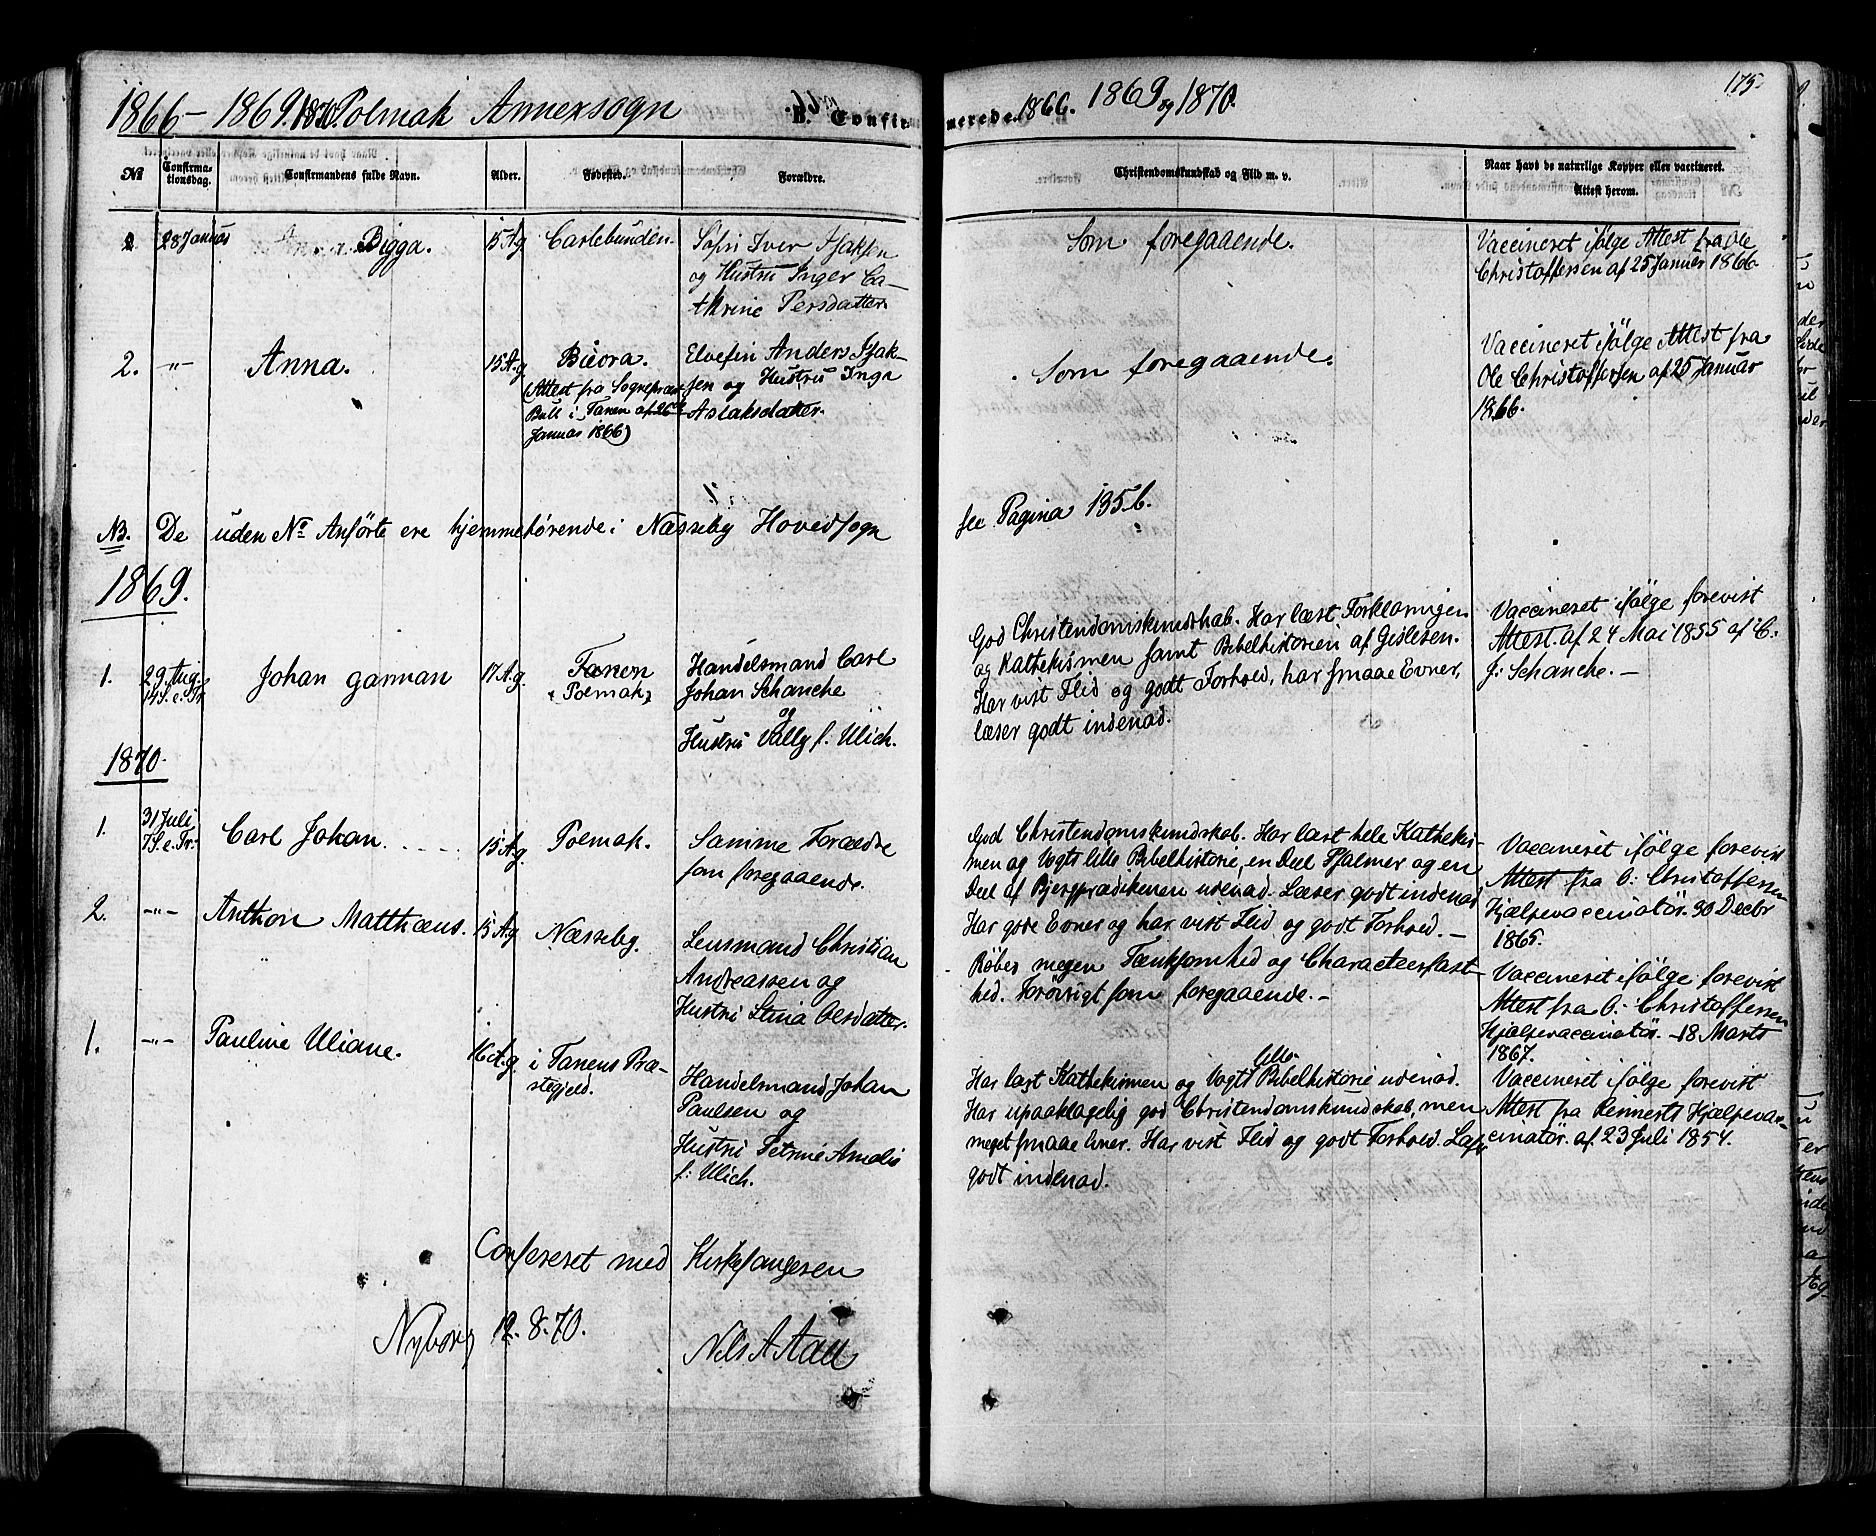 1866 – 1869. 1870. Polmak Annexsogn
B. Confirmerede. 1866. 1869 og 1870.
175.
№
Confirmationsdag.
Confirmandens fulde Navn.
Alder.
Fødested.
Forældre.
Christendomskundskab og Flid m. v.
Naar havt de naturlige Kopper eller vaccineret.
Attest herom.
28 Januar
Bigga.
15 Ag
Carlebunden.
Søfin Iver Isaksen
og Hustru Inger Ca-
thrine Persdatter.
Som foregaaende.
Vaccineret ifølge Attest fra Ole
Christoffersen af 25 Januar 1866.
2.
-"-
Anna.
15 Ag
Bicora.
(Attest fra Sognepræst
Bull i Tanen af 26de
Januar 1866)
Elvefin Anders Isak-
sen og Hustru Inga
Aslaksdatter.
Som foregaaende.
Vaccineret ifølge Attest fra
Ole Christoffersen af 25 Januar
1866.
NB. De uden No Anførte ere hjemmehørende i Næsseby Hovedsogn
see Pagina 135 b.
1869.
1.
29 Aug.
14 S. e. Tr.
Johan garman
17 Ag.
Tanen
"Polmak"
Handelsmand Carl
Johan Schanche
og
Hustru Vally f. Ulich.
God Christendomskundskab. Har læst Forklaringen
og Kathekismen samt Bibelhistorien af Gislesen.
Har vist Flid og godt Forhold, har smaae Evner,
læser godt indenad.
Vaccineret ifølge forevist
Attest. af 24 Mai 1855 af C.
J: Schanche. –
1870.
1.
31 Juli
7 S. e. Tr.
Carl Johan
15 Ag
Polmak.
Samme Forældre
som foregaaende.
God Christendomskundskab. Har læst hele Katheki-
smen og Vogts lille Bibelhistorie, en Deel Psalmer og en
Deel af Bjergprædikenen udenad. Læser godt indenad
Har gode Evner og har vist Flid og godt Forhold. –
Vaccineret ifølge forevist
Attest fra O: Christoffersen
Hjælpevaccinatør. 30 Decbr
1865.
2.
-"-
Anthon Matthæus.
15 Ag
Næsseby.
Lensmand Christian
Andreassen og
Hustru Stina Olesdatter.
Røber megen Tænksomhed og Characteerfast-
hed. Forøvrigt som foregaaende. –
Vaccineret ifølge forevist
Attest fra O: Christoffersen
Hjælpevaccinatør. – 18 Marts
1867.
1.
-"-
Pauline Uliane.
16 Ag.
i Tanens Præ-
stegjeld.
Handelsmand Johan
Paulsen og
Hustru Petrine Amalie
f: Ulich.
Har læst Kathekismen og Vogts lille Bibelhistorie udenad.
Har upaaklagelig god Christendomskundskab, men
meget smaae Evner. Har vist Flid og godt Forhold. Læser
godt indenad.
Vaccineret ifølge forevist
Attest fra Rennerts Hjælpevac-
cinatør. af 23 Juli 1854.
Confereret med Kirkesangeren
Nyborg 12. 8. 70.
Nils A Aall